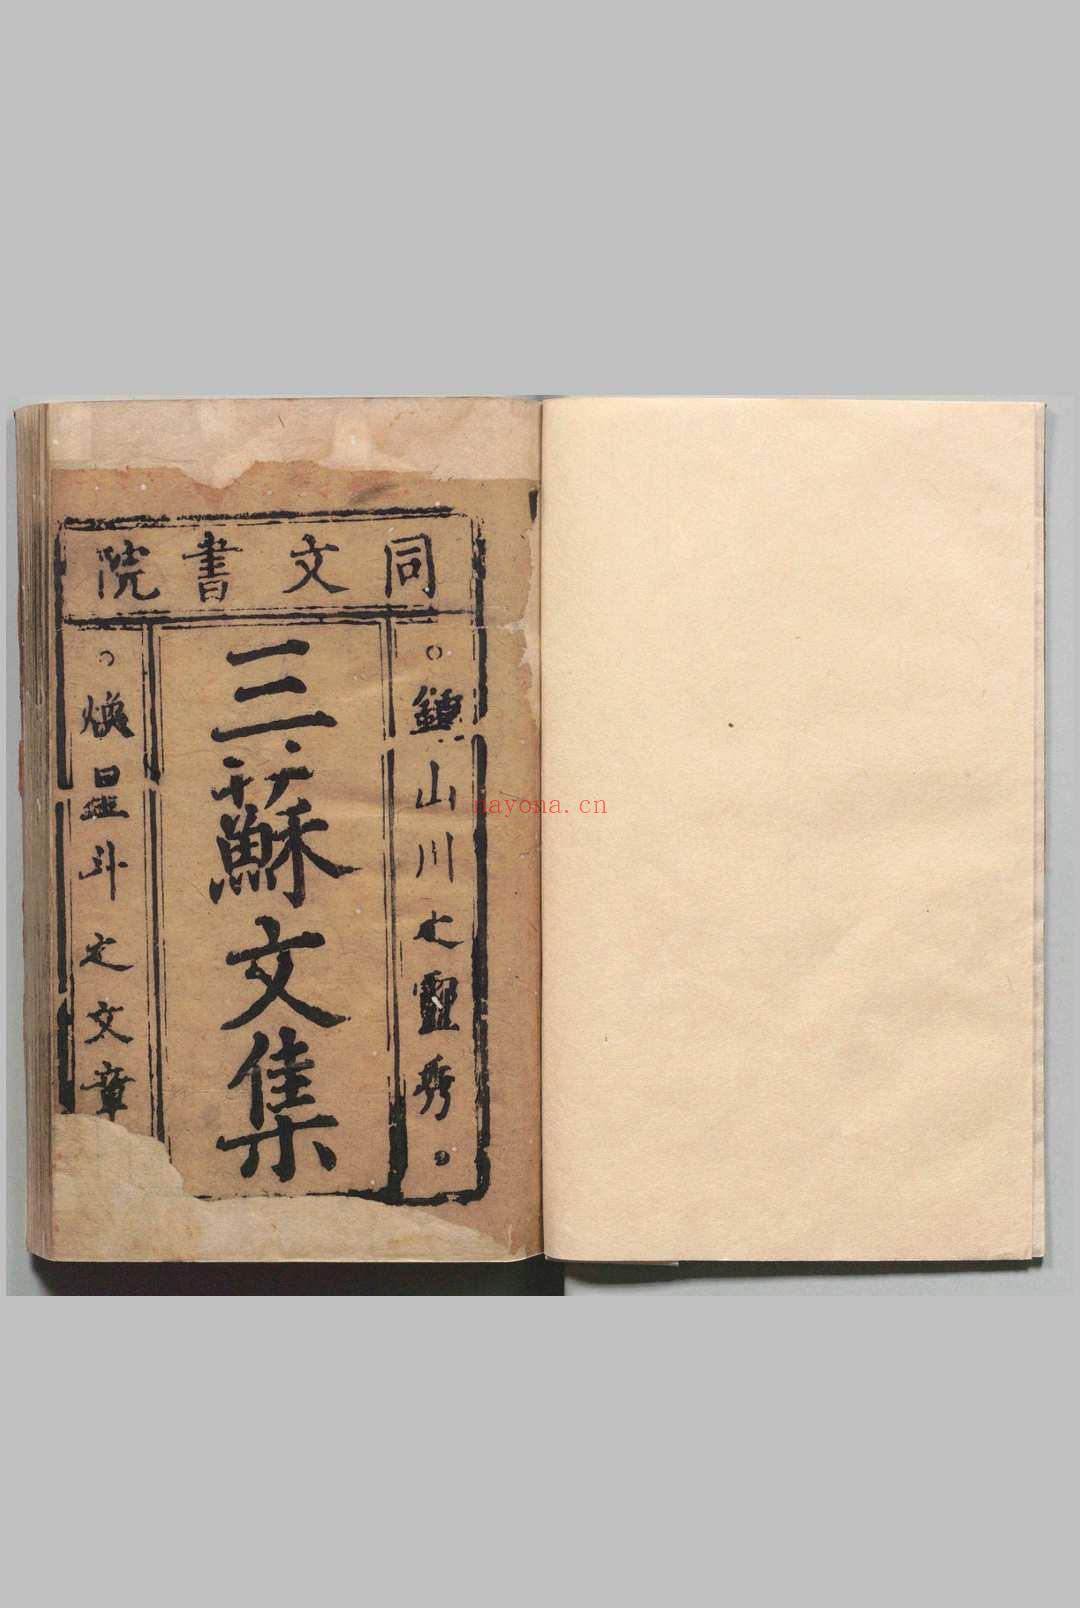 同文書院
鍾山川之靈秀
三蘇文集
煥星斗之文章
nayona.cn